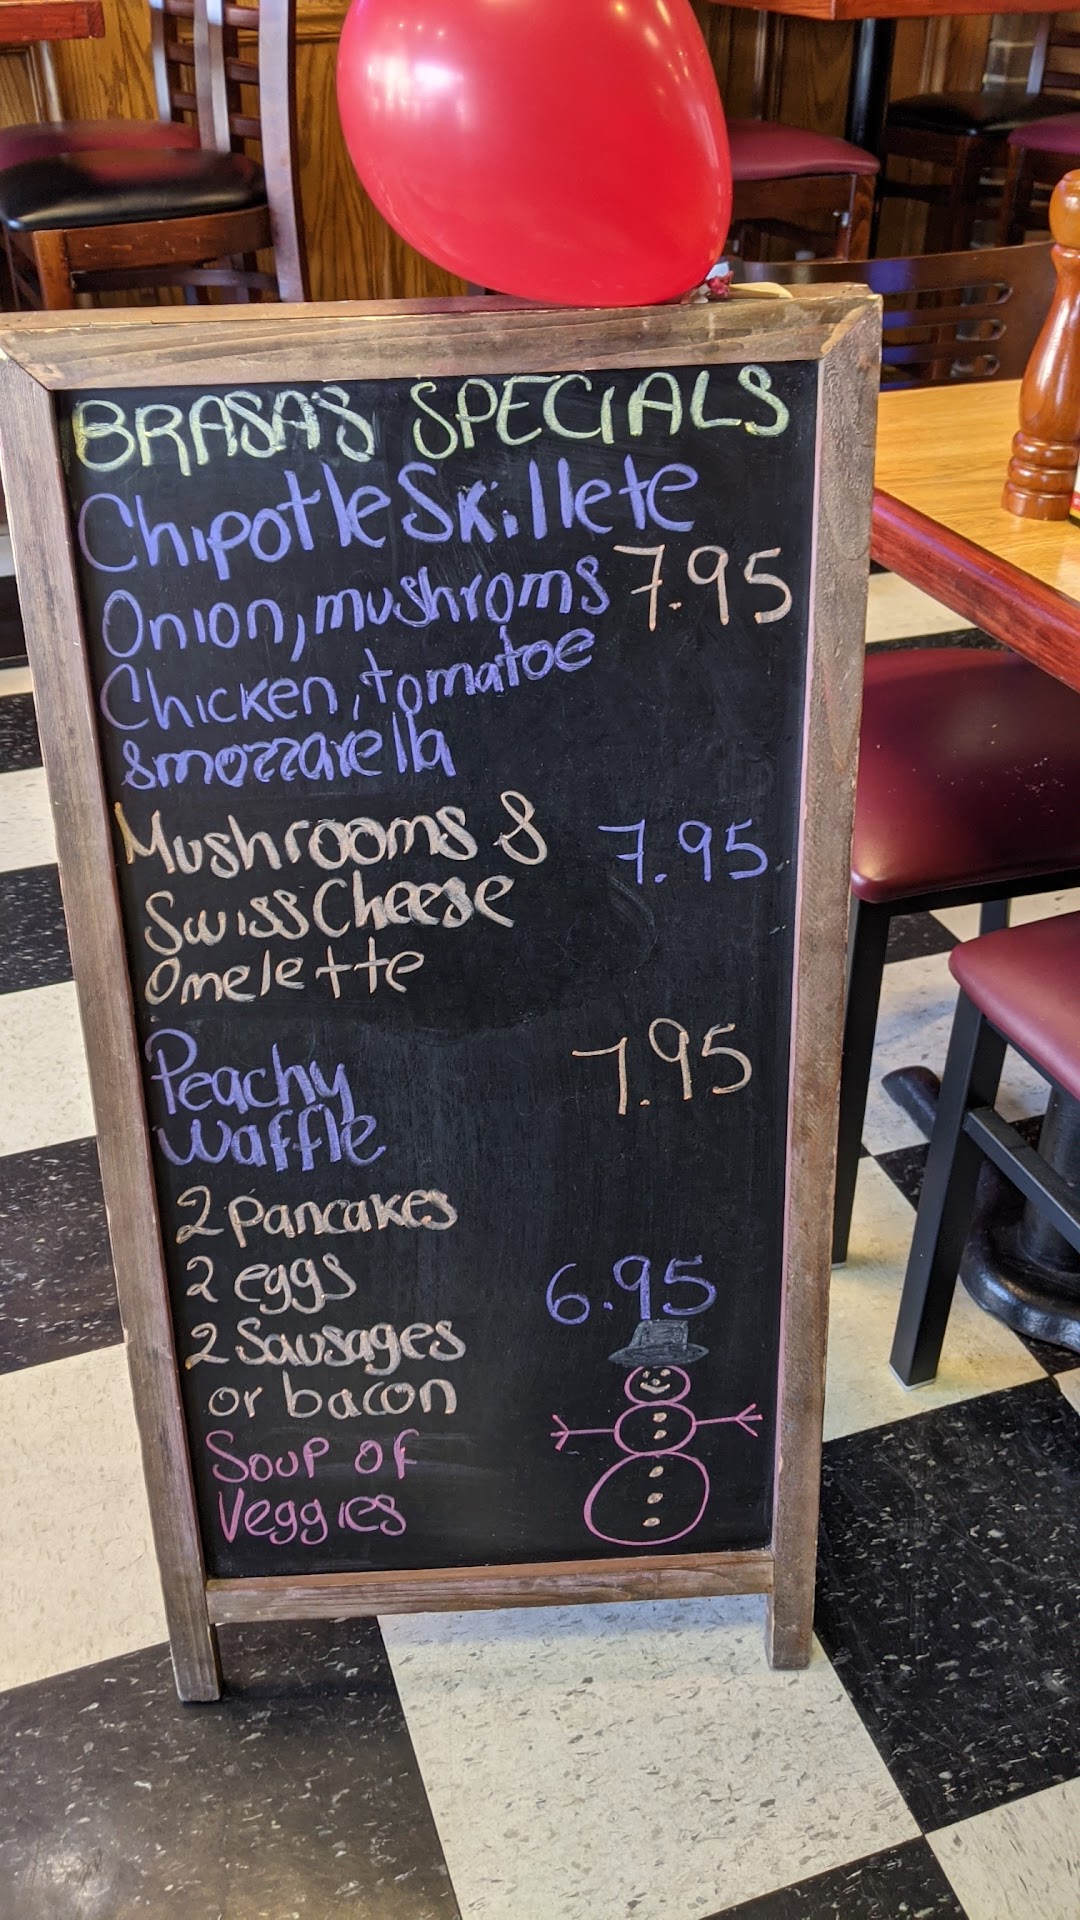 BRASA'S SPECIALS
Chipotle Skillete
Onion, mushroms 7.95
Chicken, tomatoe
& mozzarella
Mushrooms & 7.95
Swiss Cheese
Omelette
Peachy 7.95
waffle
2 pancakes
2 eggs 6.95
2 Sausages
or bacon
Soup of
Veggies